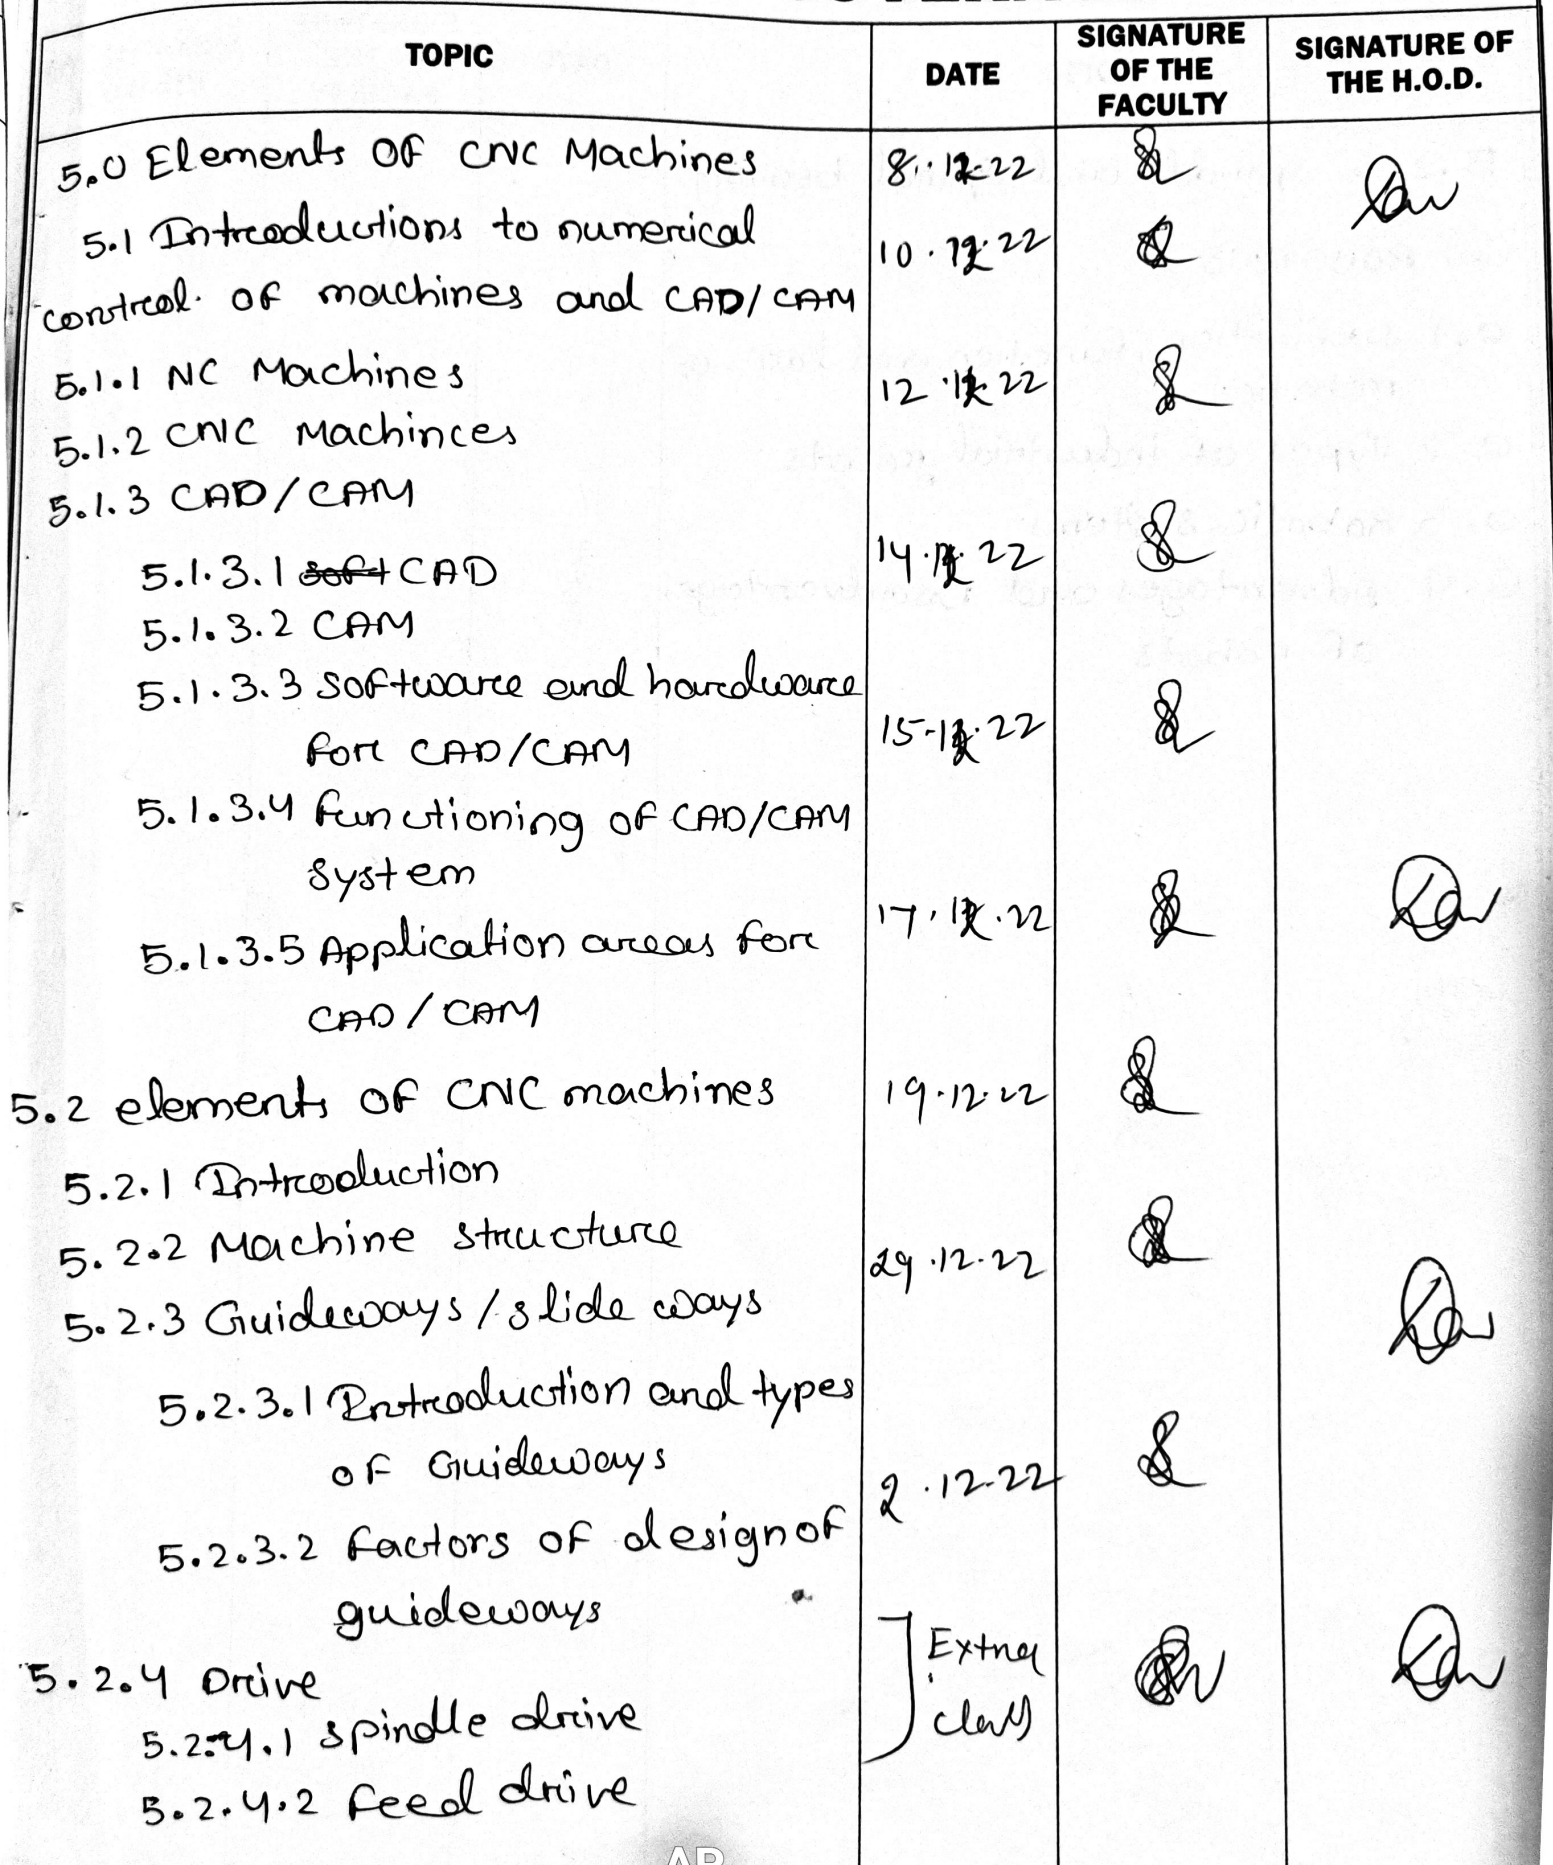 TOPIC
DATE
SIGNATURE
OF THE
FACULTY
SIGNATURE OF
THE H.O.D.
5.0 Elements OF CNC Machines
8.12.22
5.1 Introductions to numerical
10.12.22
control. OF machines and CAD/CAM
5.1.1 NC Machines
12.12.22
5.1.2 CNC Machinces
5.1.3 CAD/CAM
14.12.22
5.1.3.1 soft CAD
5.1.3.2 CAM
5.1.3.3 Software and hardware
15-12.22
for CAD/CAM
5.1.3.4 functioning of CAD/CAM
System
17.12.22
5.1.3.5 Application areas for
CAD/CAM
5.2 elements OF CNC machines
19.12.22
5.2.1 Introduction
5.2.2 Machine structure
29.12.22
5.2.3 Guideways/slide ways
5.2.3.1 Introduction and types
of Guideways
2.12.22
5.2.3.2 factors of design of
guideways
Extra
class
5.2.4 Drive
5.2.4.1 spindle drive
5.2.4.2 feed drive